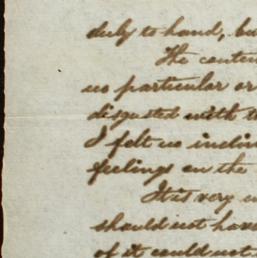 duly to hand, bu
The conten
no particular or
disgusted with t
I felt no inclin
feelings on the
It is very u
should not have
of it could not